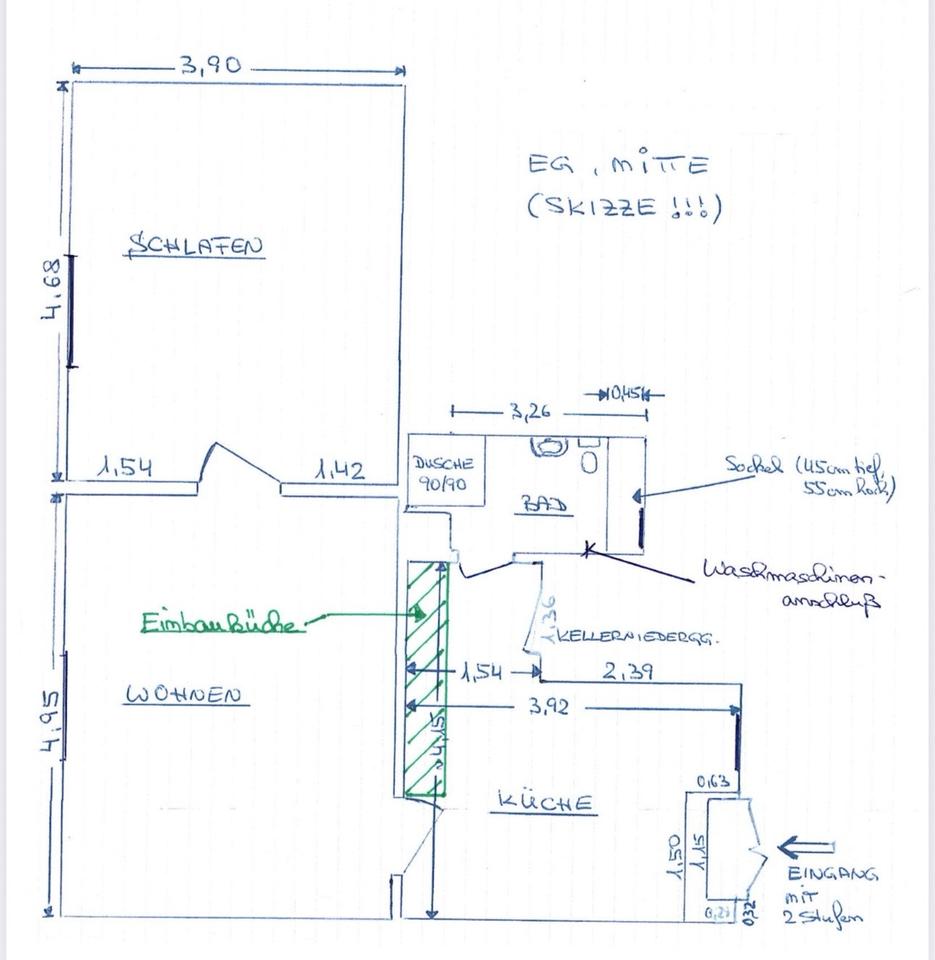 3,90
EG, MITTE
(SKIZZE !!!)
SCHLAFEN
4.68
0,45
3,26
1,54
1,42
DUSCHE
90/90
BAD
Sockel (45cm tief,
55cm hoch)
Waschmaschinen-
anschluß
Einbauküche
1,36
KELLERNIEDERGG.
1,54
2,39
WOHNEN
3,92
4.95
4,15
0,63
KÜCHE
1,50
1,15
EINGANG
MIT
2 Stufen
0,32